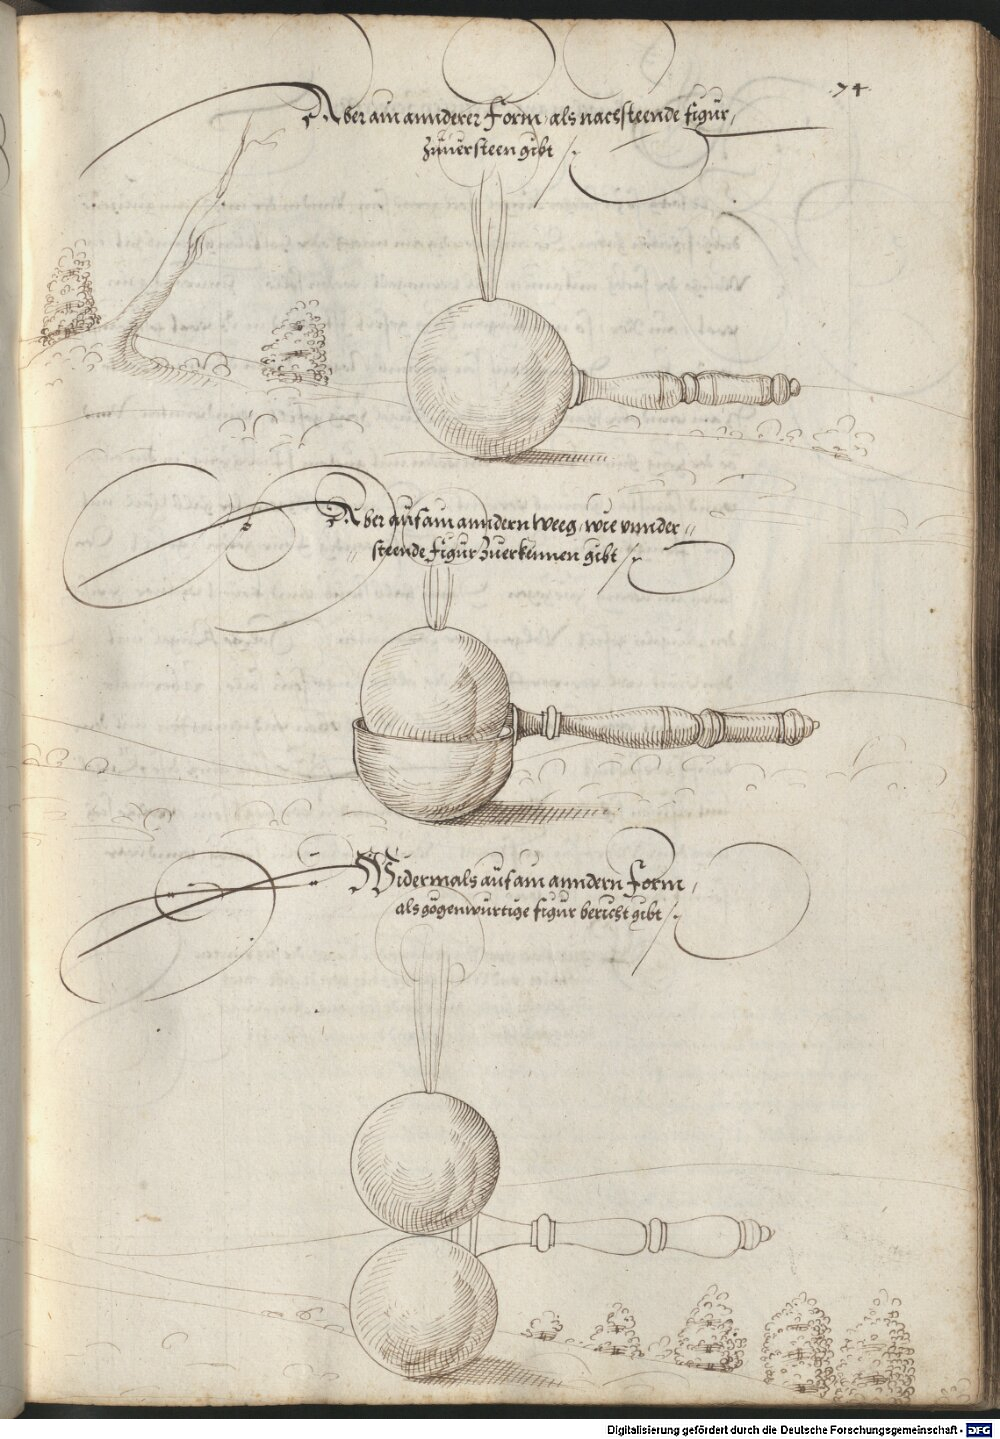 74
Aber ain annderer Form, als nachsteende figur,
Zuuersteen gibt
Aber auf ain anndern Weeg, wie vnnder //
// steende figur Zuerkennen gibt
Widermals auf ain anndern Form,
als gögenwürtige figur bericht gibt
Digitalisierung gefördert durch die Deutsche Forschungsgemeinschaft - DFG